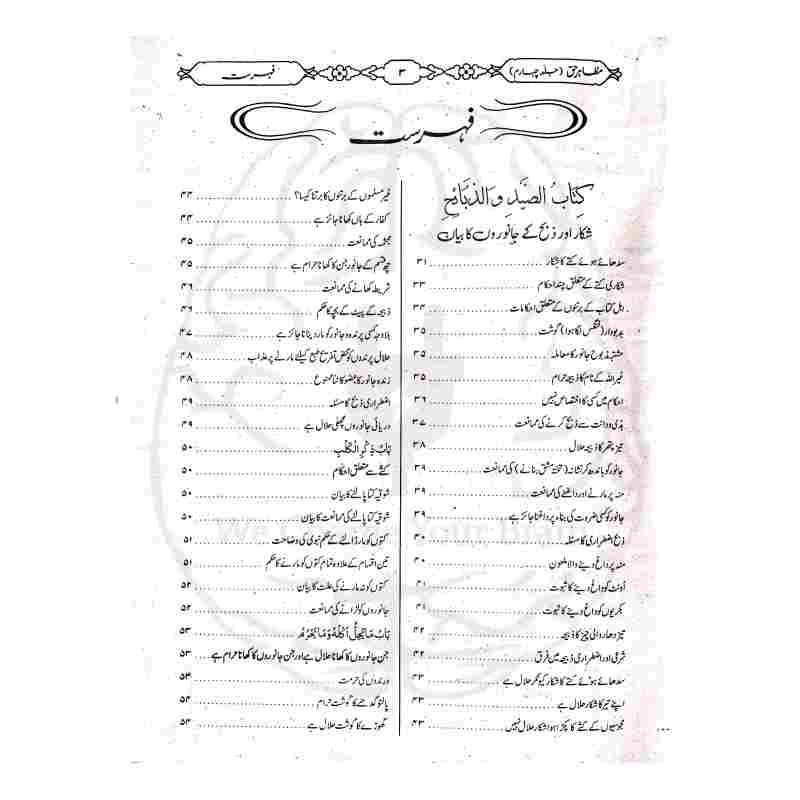 مظاہر حق (جلد چہارم)
۳
فہرست
فہرست
کِتَابُ الصَّیدِ وَالذَّبَائِحِ
شکار اور ذبح کے جانوروں کا بیان
سدھائے ہوئے کتے کا شکار ۳۱
شکاری کتے کے متعلق چند احکام ۳۳
اہل کتاب کے برتنوں کے متعلق احکامات ۳۴
بدبودار (تعفن لگا ہوا) گوشت ۳۵
مشتبہ ذبوح جانور کا معاملہ ۳۵
غیر اللہ کے نام کا ذبیحہ حرام ۳۵
احکام میں کسی کا اختصاص نہیں ۳۶
ہڈی و دانت سے ذبح کرنے کی ممانعت ۳۷
تیز پتھر کا ذبیحہ حلال ۳۸
جانور کو باندھ کر نشانہ (تختۂ مشق بنانے) کی ممانعت ۳۹
منہ پر مارنے اور داغنے کی ممانعت ۳۹
جانور کو کسی ضرورت کی بناء پر داغنا جائز ہے ۳۹
ذبح اضطراری کا مسئلہ ۴۰
منہ پر داغ دینے والا ملعون ۴۰
اونٹ کو داغ دینے کا ثبوت ۴۱
بکریوں کو داغ دینے کا ثبوت ۴۱
تیز دھار والی چیز کا ذبیحہ ۴۲
شرعی اور اضطراری ذبیحہ میں فرق ۴۲
سدھائے ہوئے کتے کا شکار کیونکر حلال ہے ۴۳
اپنے تیر کا شکار حلال ہے ۴۳
مجوسیوں کے کتے کا پکڑا ہوا شکار حلال نہیں ۴۳
غیر مسلموں کے برتنوں کا برتنا کیسا؟ ۴۴
کفار کے ہاں کھانا جائز ہے ۴۴
مجثمہ کی ممانعت ۴۵
چھ قسم کے جانور جن کا کھانا حرام ہے ۴۵
شریطہ کھانے کی ممانعت ۴۶
ذبیحہ کے پیٹ کے بچہ کا حکم ۴۶
بلا وجہ کسی پرندہ و جانور کو مار دینا ناجائز ہے ۴۷
حلال پرندوں کو محض تفریح طبع کیلئے مارنے پر عذاب ۴۸
زندہ جانور کا عضو کاٹنا ممنوع ۴۸
اضطراری ذبح کا مسئلہ ۴۹
دریائی جانوروں مچھلی حلال ہے ۴۹
بَابُ ذِكْرِ الْكَلْبِ ۵۰
کتے سے متعلق احکام ۵۰
شوقیہ کتا پالنے کا بیان ۵۰
شوقیہ کتا پالنے کی ممانعت کا بیان ۵۰
کتوں کو مار ڈالنے کے حکم نبوی کی وضاحت ۵۱
تین اقسام کے علاوہ تمام کتوں کو مارنے کا حکم ۵۱
کتوں کو نہ مارنے کی علت کا بیان ۵۲
جانوروں کو لڑانے کی ممانعت ۵۲
بَابُ مَا يَحِلُّ أَكْلُهُ وَمَا يَحْرُمُ ۵۳
جن جانوروں کا کھانا حلال ہے اور جن جانوروں کا کھانا حرام ہے ۵۳
درندوں کی حرمت ۵۳
پالتو گدھے کا گوشت حرام ۵۴
گھوڑے کا گوشت حلال ہے ۵۴